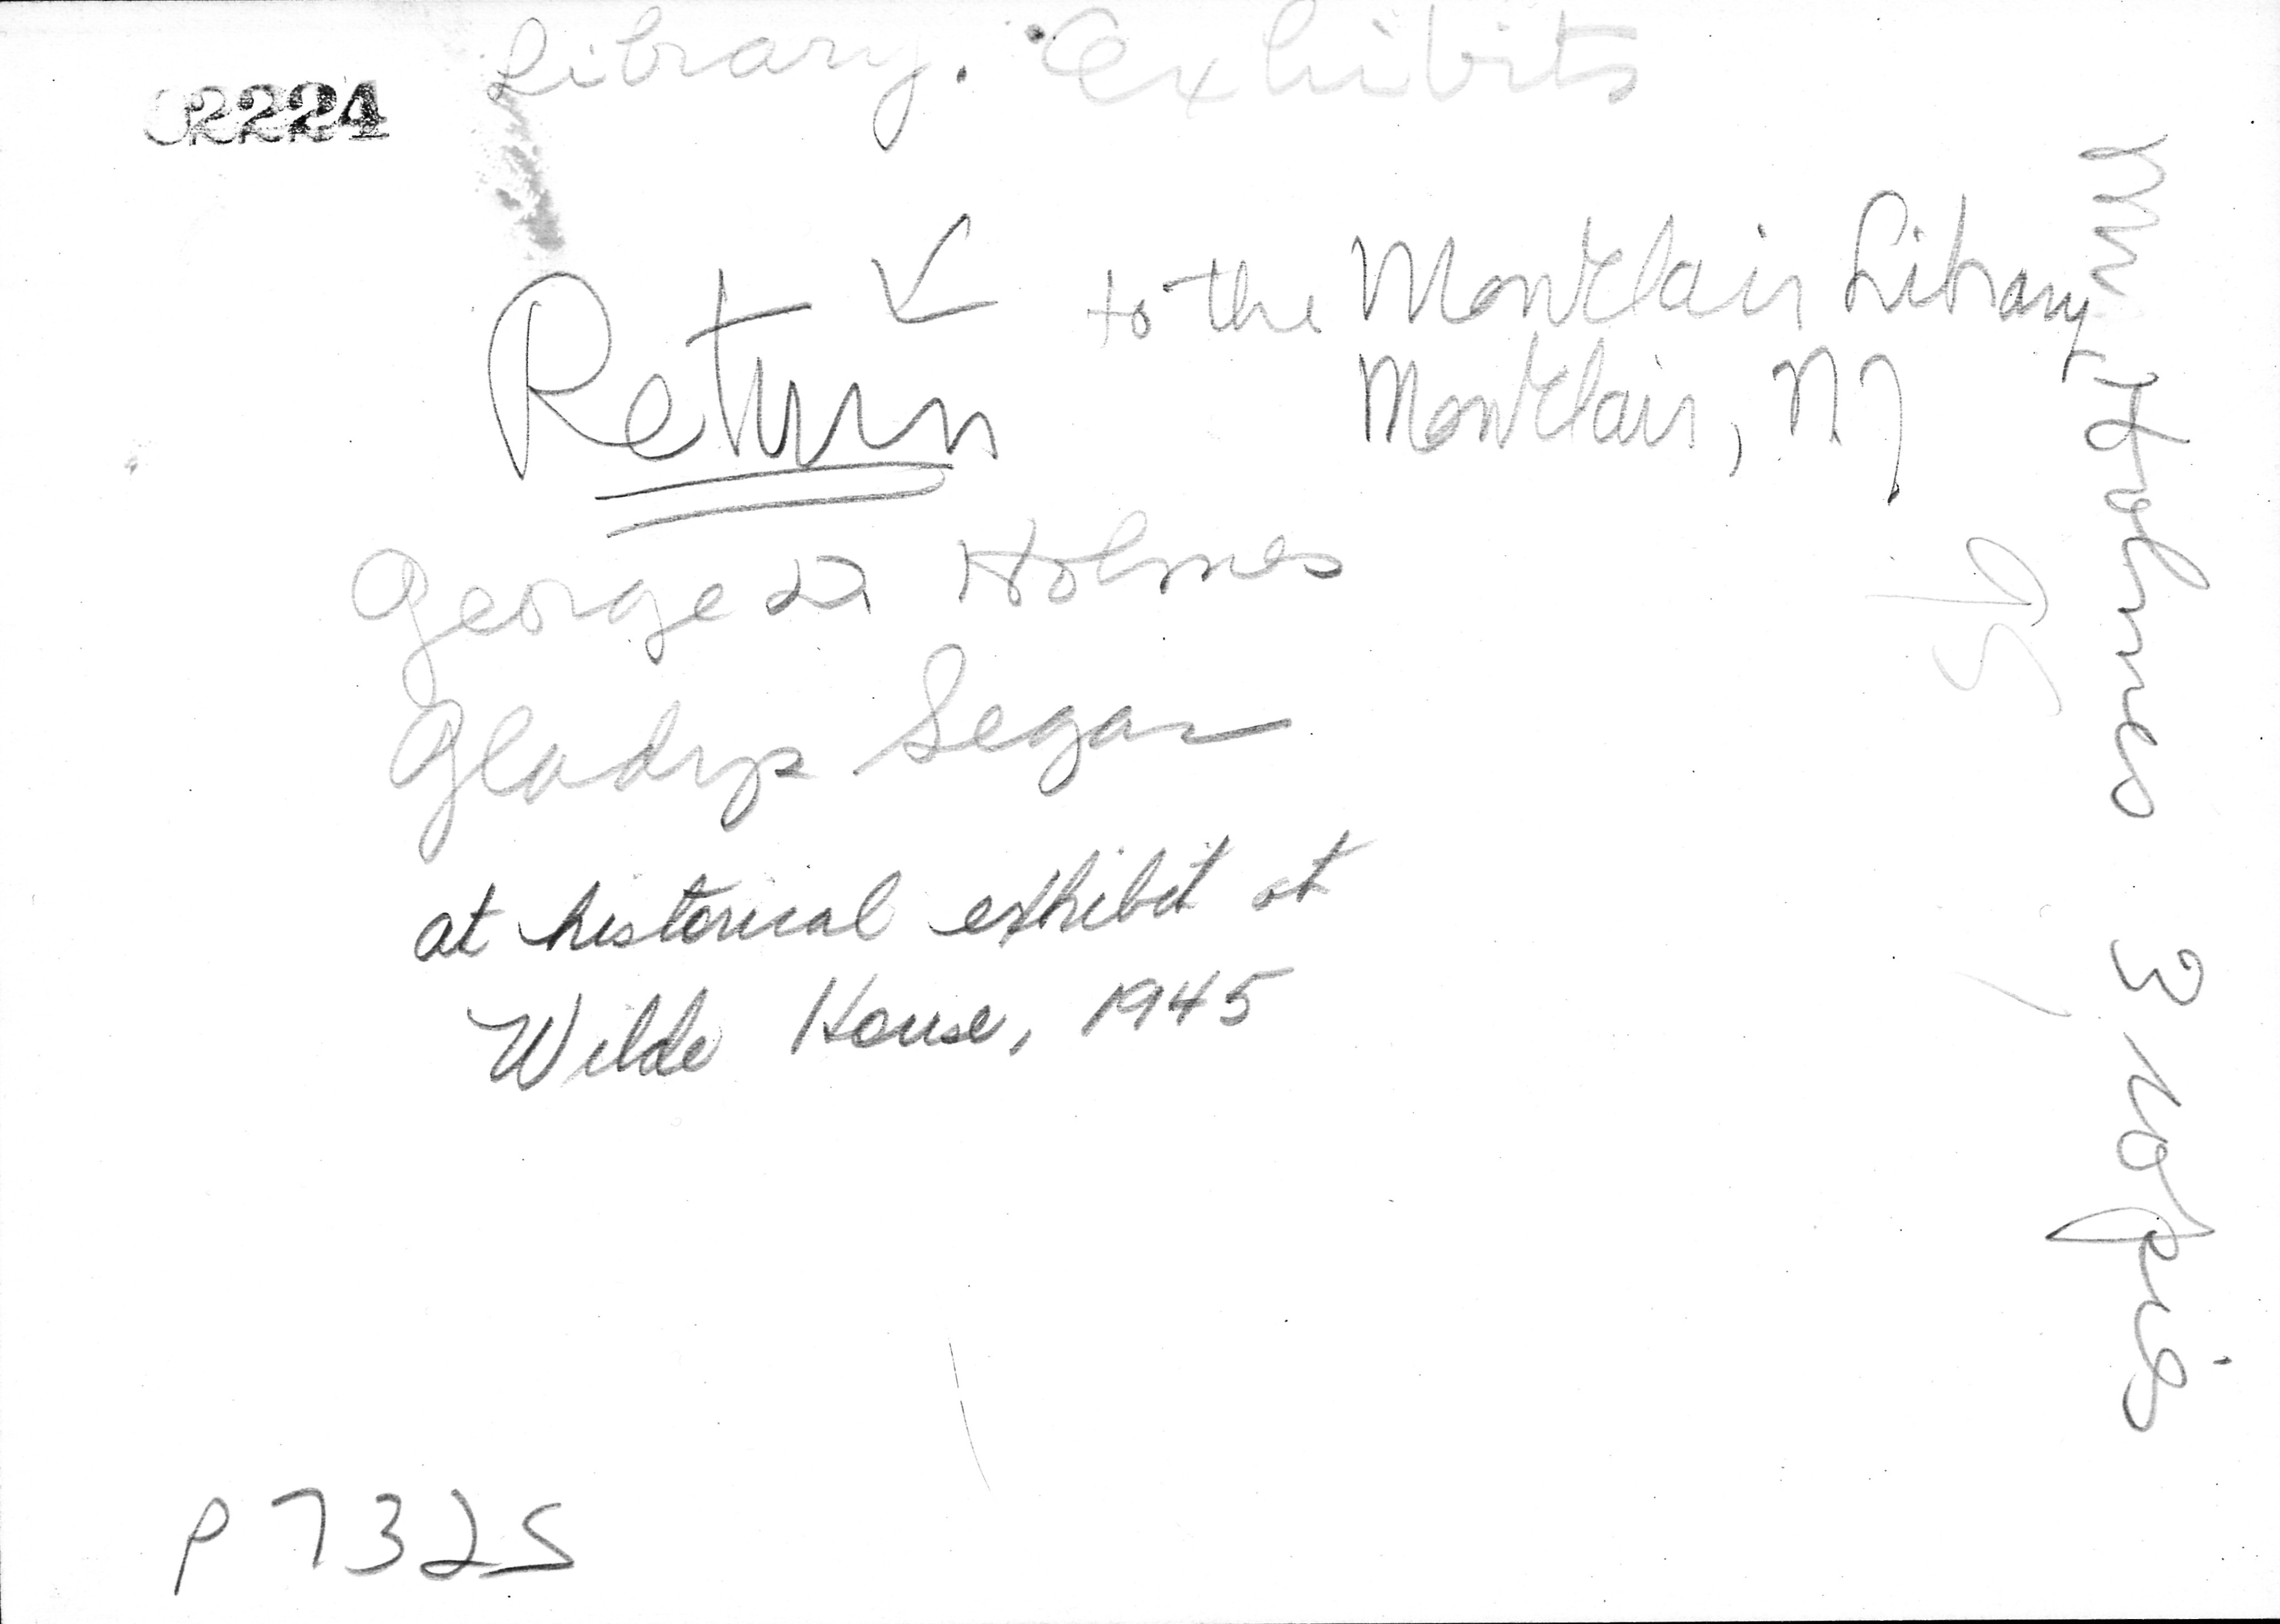 Library. Exhibits
02224
Return to the Montclair Library
Montclair, NJ
George Holmes
Gladys Segar
at historical exhibit at
Wilde House, 1945
P7325
Mr Holmes 3 copies